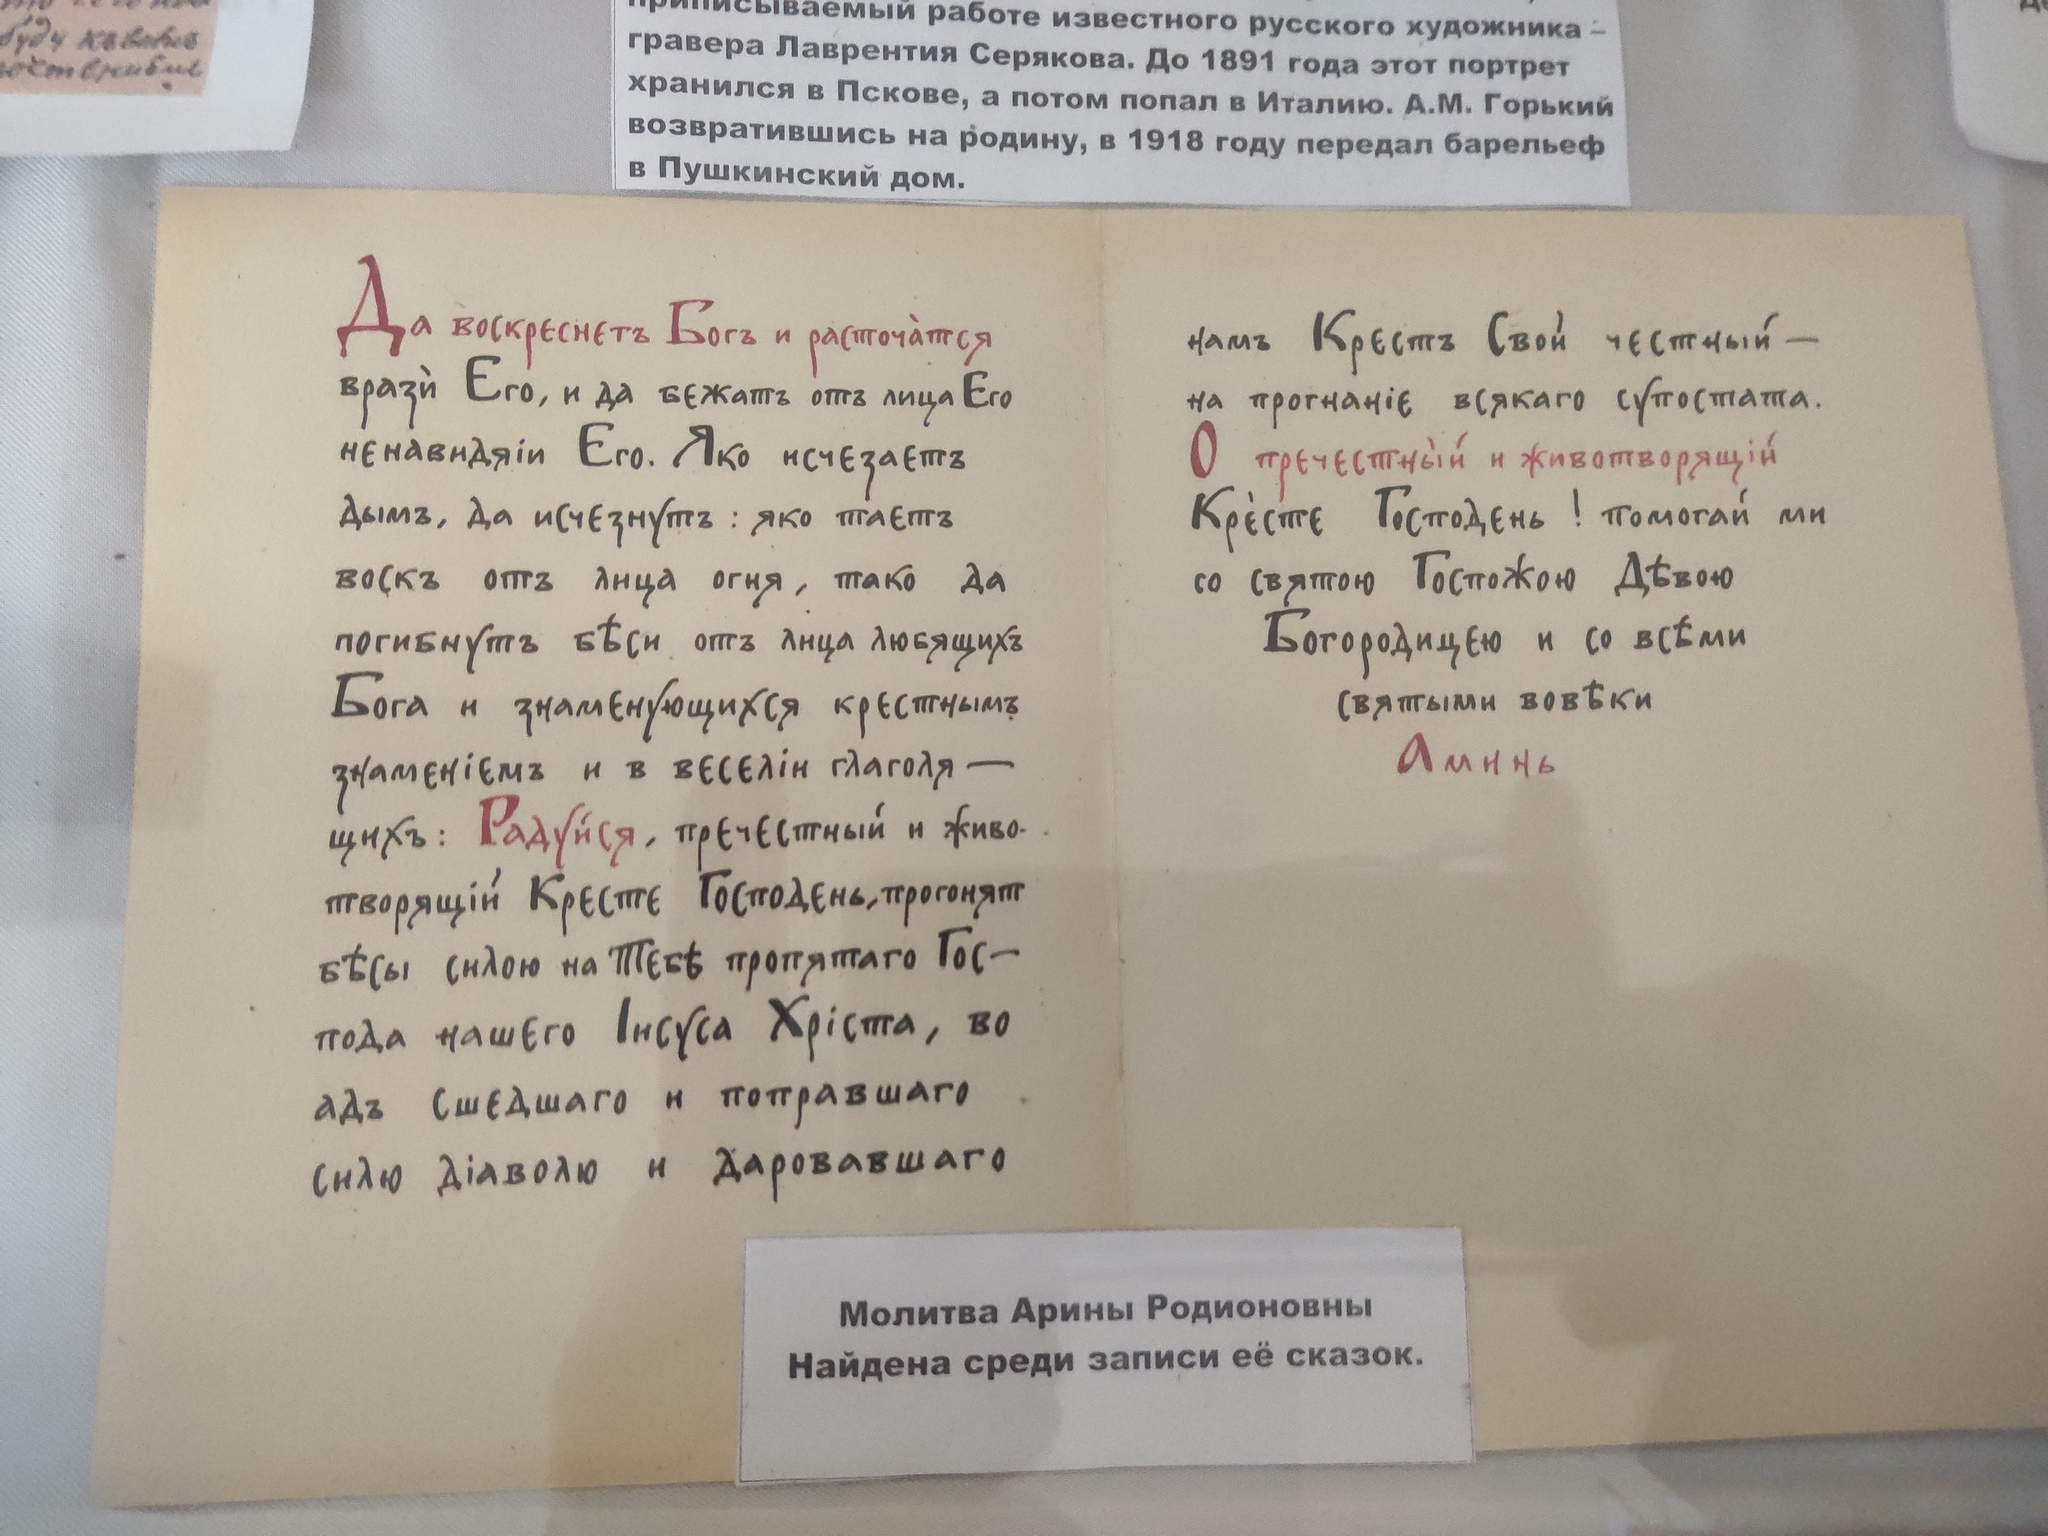 буду
приписываемый работе известного русского художника –
гравера Лаврентия Серякова. До 1891 года этот портрет
хранился в Пскове, а потом попал в Италию. А.М. Горький
возвратившись на родину, в 1918 году передал барельеф
в Пушкинский дом.
Да воскреснетъ Богъ и расточатся
врази Его, и да бежатъ отъ лица Его
ненавидяiи Его. Яко исчезаетъ
дымъ, да исчезнутъ: яко таетъ
воскъ отъ лица огня, тако да
погибнутъ бѣси отъ лица любящихъ
Бога и знаменующихся крестнымъ
знаменiемъ и в веселiи глаголя—
щихъ: Радуйся, пречестный и живо-
творящiй Кресте Господень, прогонят
бѣсы силою на Тебѣ пропятаго Гос—
пода нашего Iисуса Хрiста, во
адъ сшедшаго и поправшаго
силю дiаволю и даровавшаго
намъ Крестъ Свой честный—
на прогнанiе всякаго супостата.
О пречестный и животворящiй
Кресте Господень! помогай ми
со святою Госпожою Дѣвою
Богородицею и со всѣми
святыми вовѣки
Аминь
Молитва Арины Родионовны
Найдена среди записи её сказок.